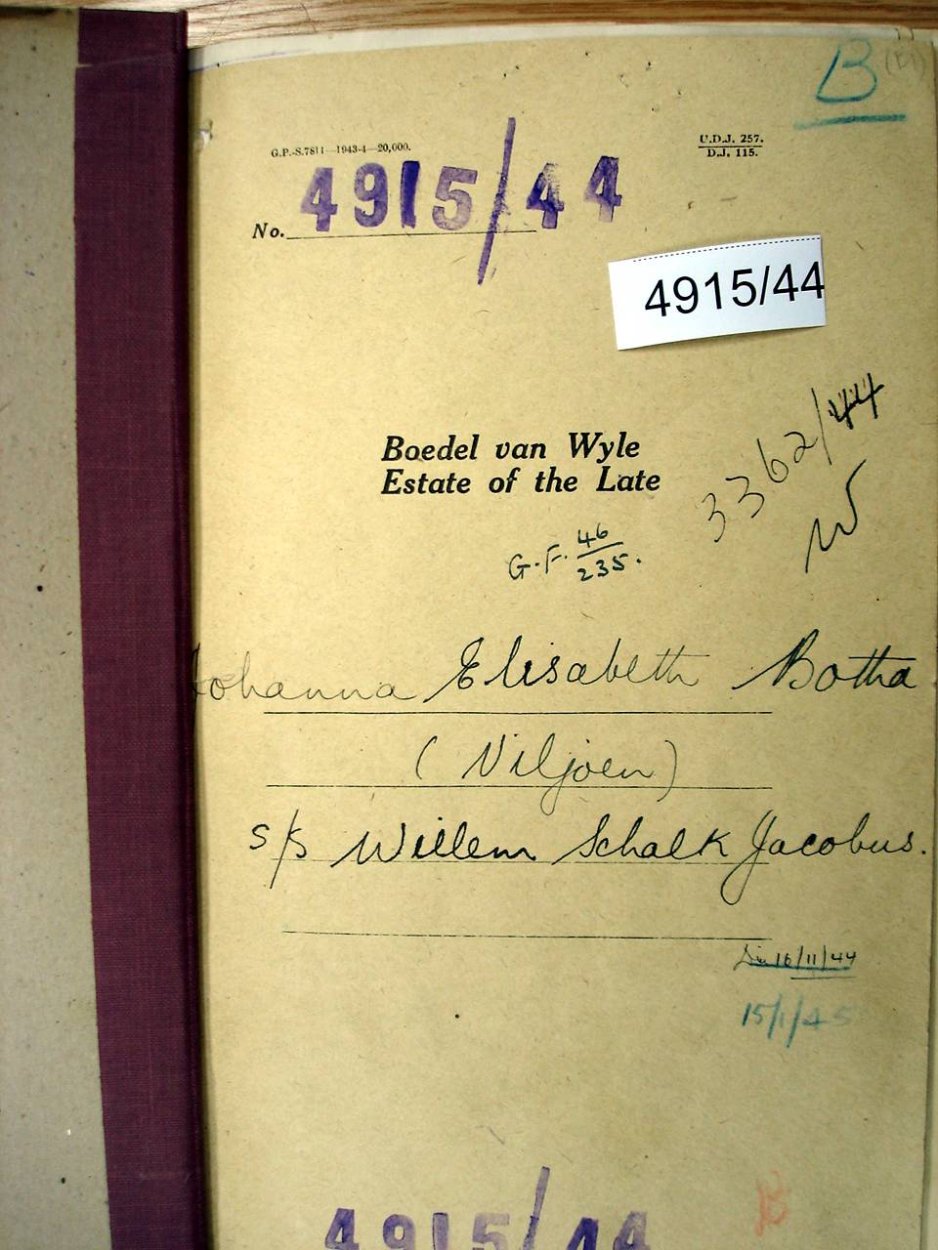 B
G.P.-S.7811—1943-4—20,000.
U.D.J. 257.
D.J. 115.
No. 4915/44
4915/44
3362/44
Boedel van Wyle
Estate of the Late
G.F. 46
235.
Johanna Elisabeth Botha
(Viljoen)
s/s Willem Schalk Jacobus.
16/11/44
15/1/45
B
4915/44